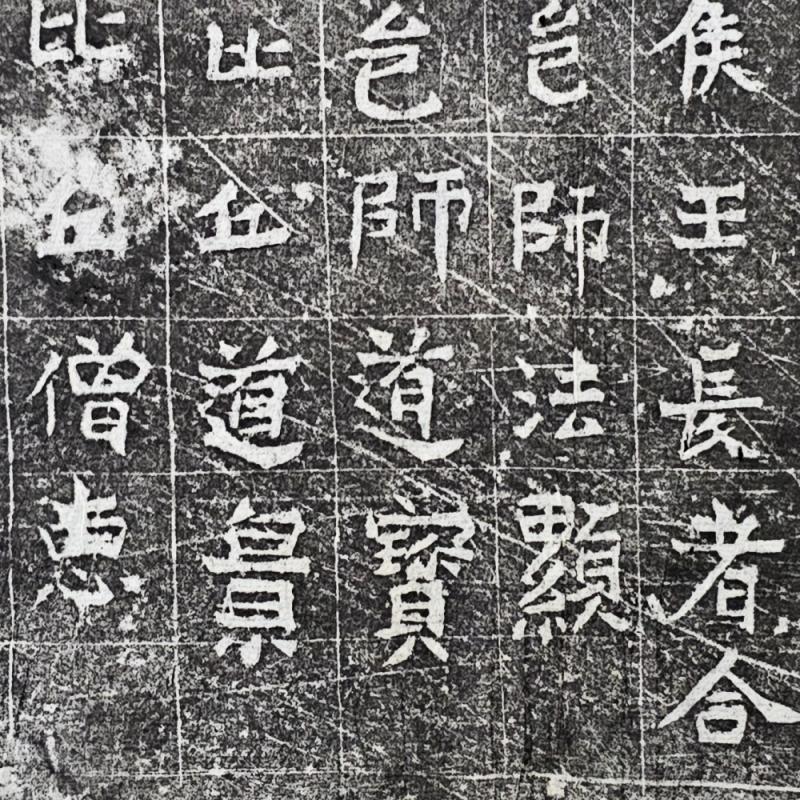 侯王長者合
邑師法顯
邑師道寶
比丘道
比丘僧惠